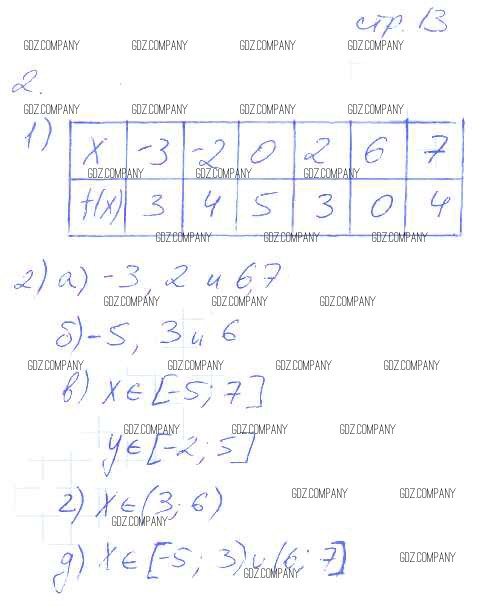 стр. 13
GDZ.COMPANY GDZ.COMPANY GDZ.COMPANY GDZ.COMPANY
2.
GDZ.COMPANY GDZ.COMPANY GDZ.COMPANY GDZ.COMPANY
1) x -3 -2 0 2 6 7
GDZ.COMPANY GDZ.COMPANY GDZ.COMPANY
f(x) 3 4 5 3 0 4
GDZ.COMPANY GDZ.COMPANY GDZ.COMPANY
2) а) -3, 2 и 6,7
GDZ.COMPANY GDZ.COMPANY GDZ.COMPANY
б) -5, 3 и 6
GDZ.COMPANY GDZ.COMPANY GDZ.COMPANY GDZ.COMPANY
в) x∈[-5; 7]
GDZ.COMPANY GDZ.COMPANY GDZ.COMPANY
y∈[-2; 5]
GDZ.COMPANY GDZ.COMPANY
г) x∈(3; 6)
GDZ.COMPANY
д) x∈[-5; 3)∪(6; 7]
GDZ.COMPANY GDZ.COMPANY